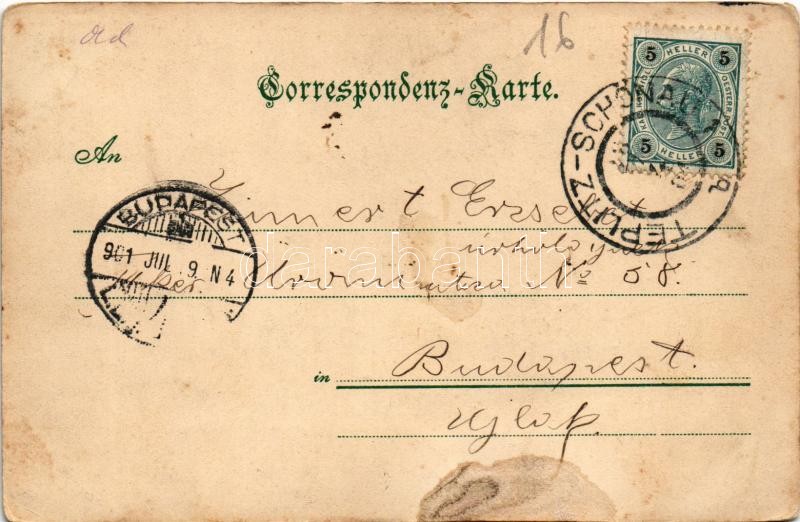 ad
16
5 HELLER 5
5 HELLER 5
Correspondenz-Karte.
TEPLITZ-SCHÖNAU
An
Erzsé
úrhölgynek
BUDAPEST
901 JUL. 9. N4
III. ker. No 58.
darabanth
in Budapest.
Ujlak.